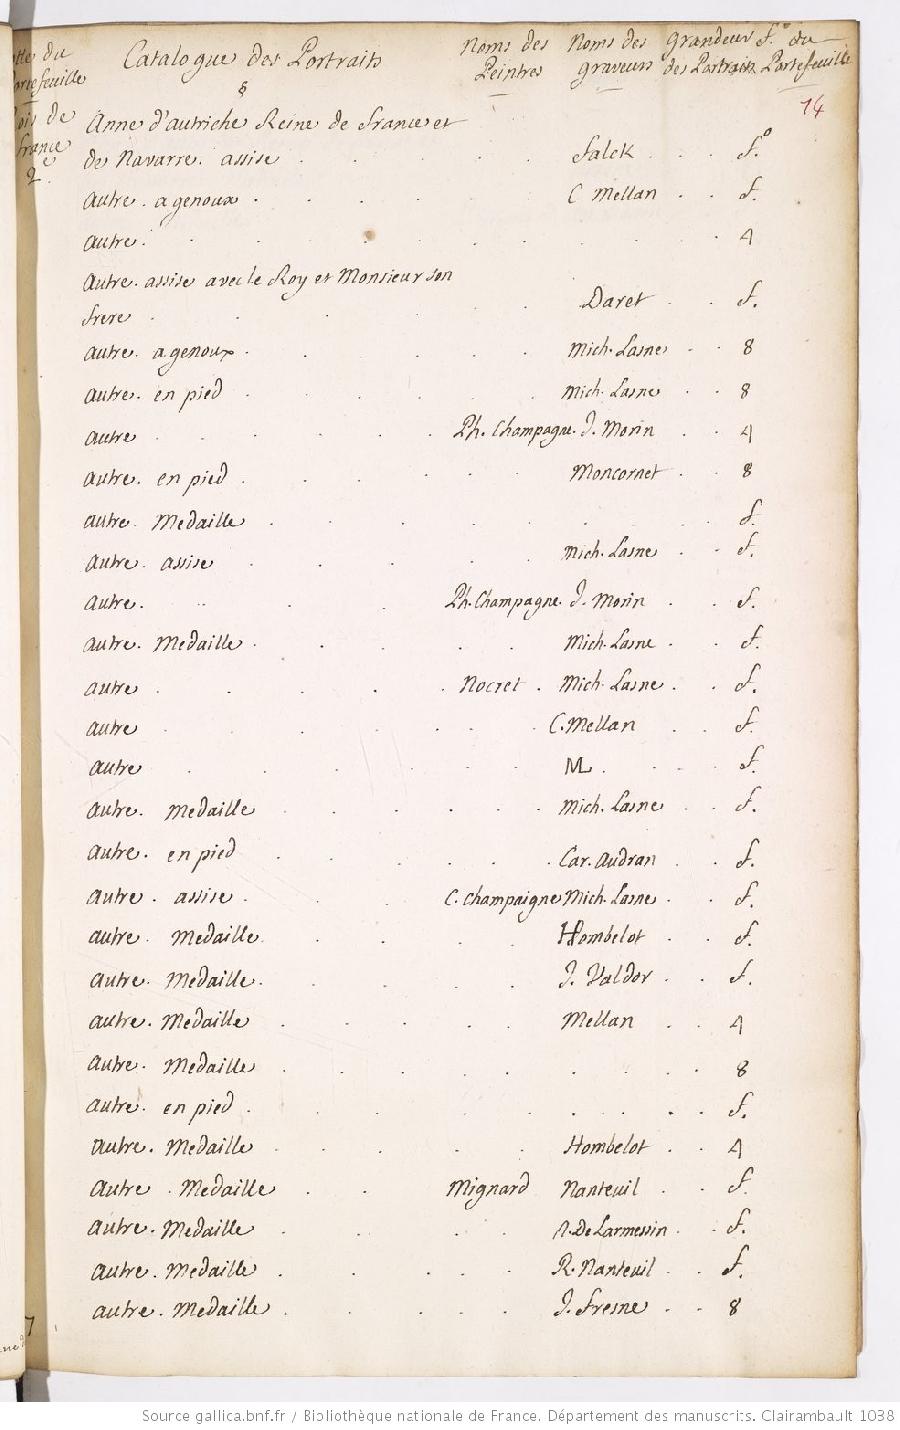 Catalogue des Portraits Noms des Peintres Noms des graveurs Grandeur des Portraits f.º du Portefeuille
14
Rois de
France
2e.
Anne d'autriche Reine de france et
de Navarre. assise . . . . . falck . . . f.º
autre. a genoux . . . . . C Mellan . . f.
autre. . . . . . . . . . 4
autre. assise avec le Roy et Monsieur son
frere . . . . . Daret . . f.
autre. a genoux . . . . . Mich. Lasne . . 8
autre. en pied . . . . . Mich. Lasne . . 8
autre . . . . . Ph. Champagne. J. Morin . . 4
autre. en pied . . . . . Moncornet . . 8
autre. Medaille . . . . . . . . f.
autre. assise . . . . Mich. Lasne . . f.
autre. . . . Ph. Champagne. J. Morin . . f.
autre. Medaille . . . . . Mich. Lasne . . f.
autre . . . . . Nocret . Mich. Lasne . . f.
autre . . . . . . C. Mellan . . f.
autre . . . . . . M. . . . f.
autre. Medaille . . . . . Mich. Lasne . . f.
autre. en pied . . . . . . Car. Audran . . f.
autre. assise . . . C. Champaigne Mich. Lasne . . f.
autre. Medaille . . . . Hombelot . . f.
autre. Medaille . . . . . J. Valdor . . f.
autre. Medaille . . . . Mellan . . 4
autre. Medaille . . . . . . . . 8
autre. en pied . . . . . . . . f.
autre. Medaille . . . . . Hombelot . . 4
autre . Medaille . . Mignard Nanteuil . . f.
autre. Medaille . . . . N. De Larmessin . . f.
autre. Medaille . . . . . R. Nanteuil . . f.
autre. Medaille . . . . . J. Fresne . . 8
Source gallica.bnf.fr / Bibliothèque nationale de France. Département des manuscrits. Clairambault 1038